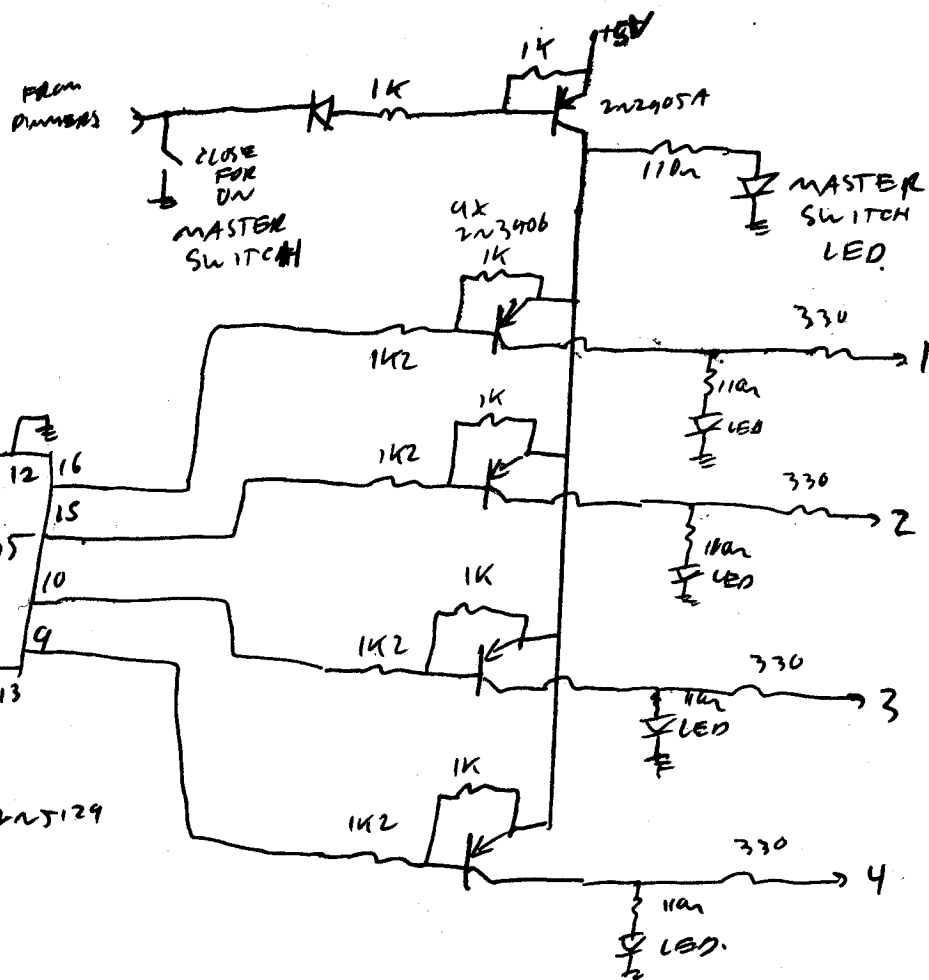 +5V
1K
FROM
DIMMERS
1K
2N2905A
CLOSE
FOR
ON
MASTER
SWITCH
110Ω
MASTER
SWITCH
LED.
4X
2N3906
1K
330
1K2
1
110Ω
LED
1K
12
16
1K2
330
15
2
110Ω
LED
10
1K
9
1K2
330
13
110Ω
3
LED
1K
2N5129
1K2
330
4
110Ω
LED.